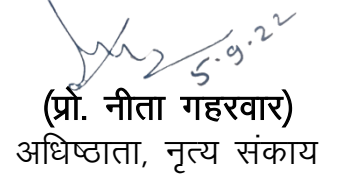 5.9.22
(प्रो. नीता गहरवार)
अधिष्ठाता, नृत्य संकाय